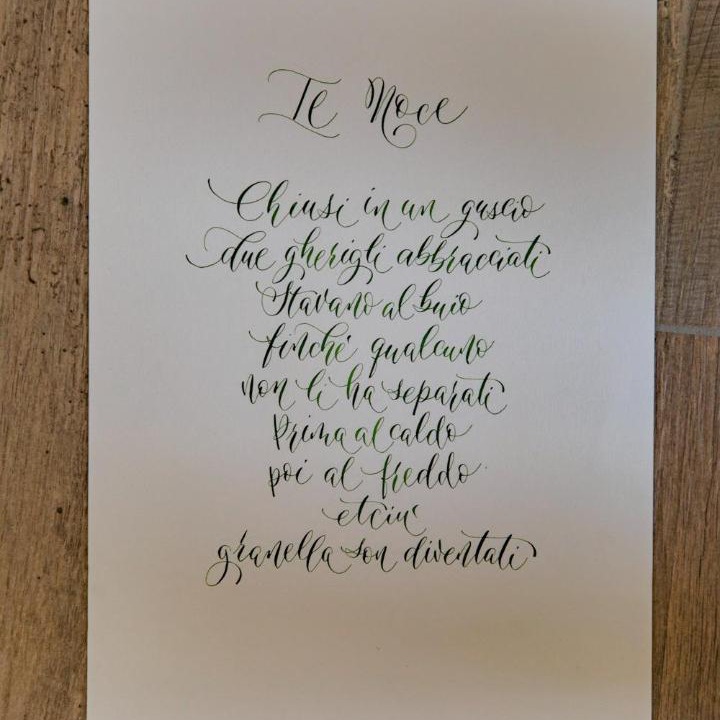 Te Noce
Chiusi in un guscio
due gherigli abbracciati
Stavano al buio
finché qualcuno
non li ha separati
Prima al caldo
poi al freddo
etciu'
granella son diventati